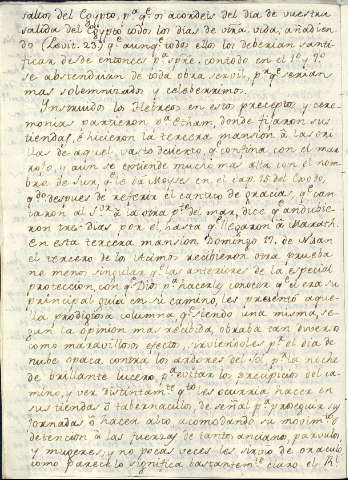 salios del Egypto, pª qᵉ os acordeis del dia de vuestra
salida del Egypto todos los dias de vtra. vida, añadien
do (Levit. 23) qᵉ aunqᵉ todos ellos los deberian santi
ficar desde entonces pª spre. con todo en el 1º y 7º
se abstendrian de toda obra servil, pª qᵉ serian
mas solemnizados y celeberrimos.
Instruidos los Hebreos en estos preceptos y cere
monias partieron pª Etham, donde fixaron sus
tiendas, é hicieron la tercera mansion à las ori
llas de aquel vasto desierto, qᵉ confina con el mar
roxo, y aun se estiende mucho mas alla con el nom
bre de Sur, qᵉ le da Moyses en el cap. 15 del Exodo,
qdo despues de referir el cantico de gracias, qᵉ can
taron al Sʳ à la otra pᵗᵉ del mar, dice qᵉ andubie
ron tres dias por el, hasta qᵉ llegaron à Marath.
En esta tercera mansion Domingo 17. de Nisan
el tercero de los Azimos recibieron otra prueba
no menos singular qᵉ las anteriores de la especial
proteccion, con qᵉ Dios pª hacerles conocer qᵉ el era su
principal guia en su camino, les presentó aque
lla prodigiosa columna, qᵉ siendo una misma, se
gun la opinion mas recibida, obraba tan diversos
como maravillosos efectos, sirviendoles pʳ el dia de
nube opaca contra los ardores del Sol, pʳ la noche
de brillante lucero pª evitar los precipicios del ca
mino, y ver distintamᵗᵉ qᵗᵒ les ocurria hacer en
sus tiendas ò tabernaculos, de señal pª proseguir sus
jornadas ò hacer alto, acomodando su movimᵗᵒ ò
detencion à las fuerzas de tanto anciano, parvulos,
y mugeres, y no pocas veces les sirvio de oraculo
como parece lo significa bastantemᵗᵉ claro el Rl